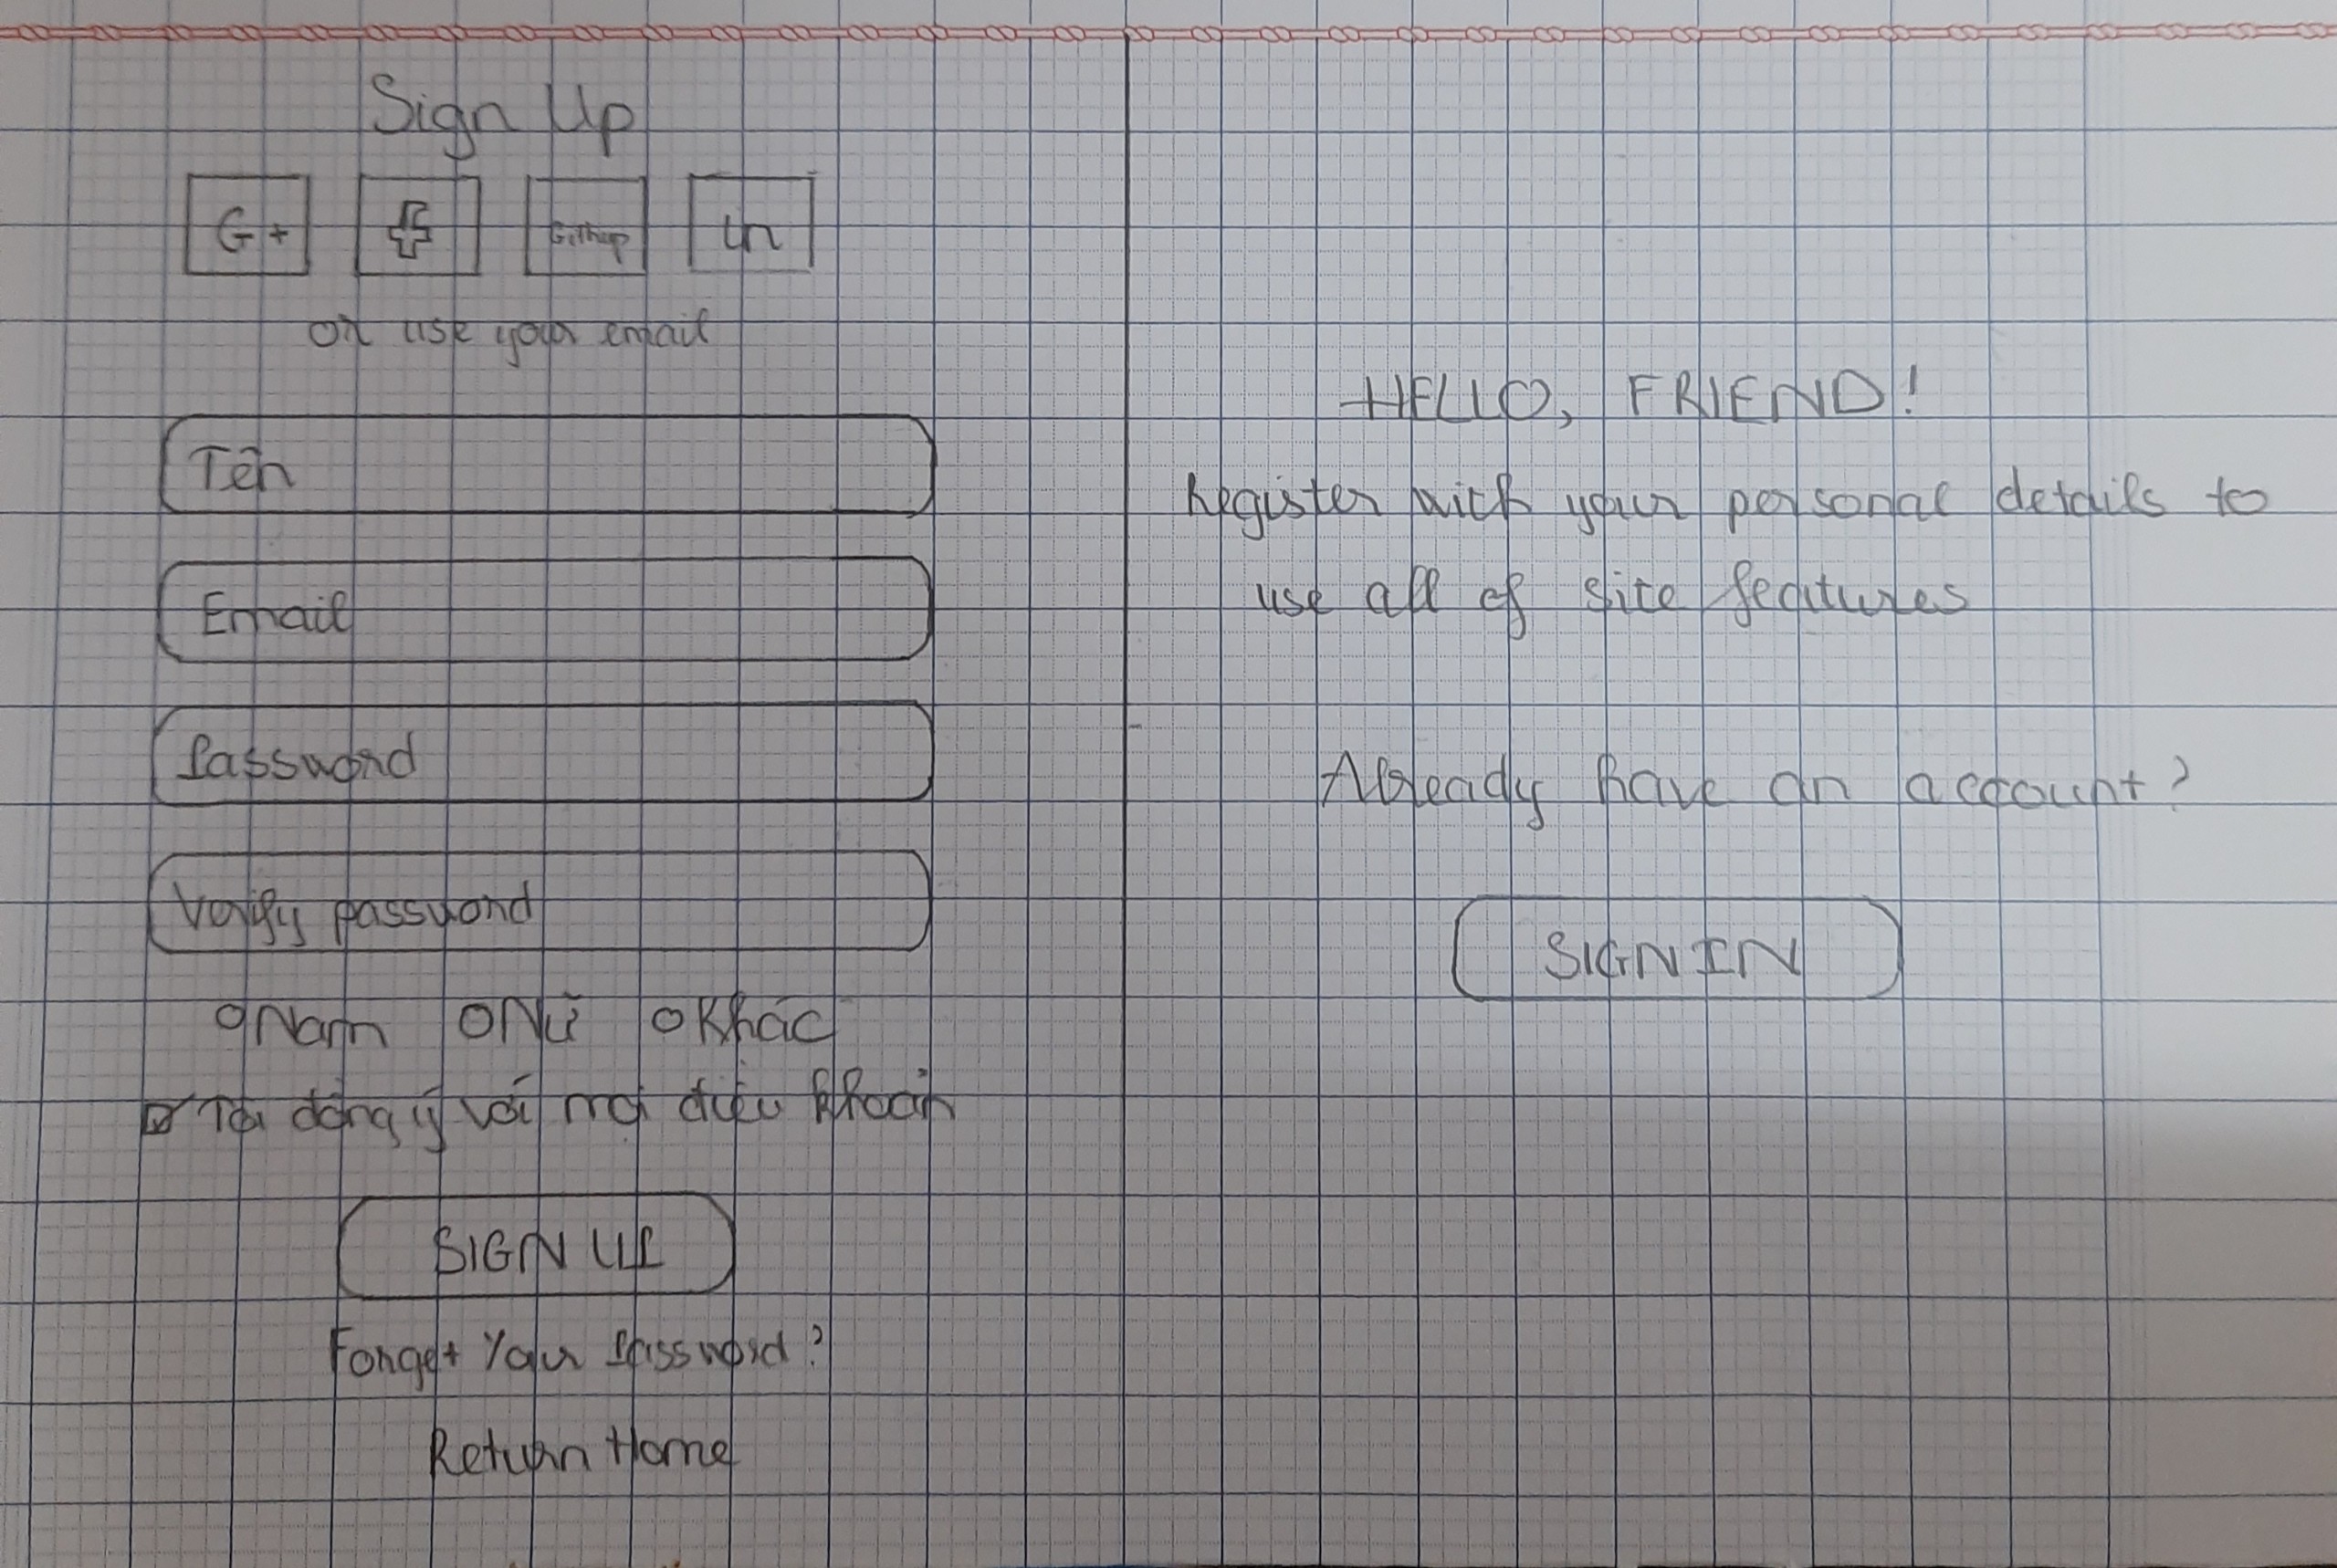 Sign Up
G+ f Githup in
or use your email
Tên
Email
Password
Verify password
Nam Nữ Khác
Tôi đồng ý với mọi điều khoản
SIGN UP
Forget Your Password?
Return Home
HELLO, FRIEND!
Register with your personal details to
use all of site features
Already have an account?
SIGN IN